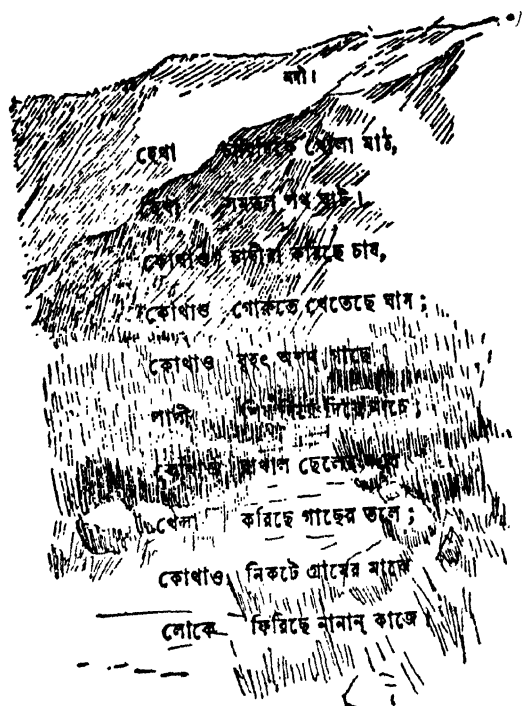 নদী।
হেথা চারিদিকে খোলা মাঠ,
হেথা সমতল পথ ঘাট।
কোথাও চাষীরা করিছে চাষ,
কোথাও গোরুতে খেতেছে ঘাস;
কোথাও বৃহৎ অশথ গাছে
পাখী শিস্ দিয়ে দিয়ে নাচে;
কোথাও রাখাল ছেলের দলে
খেলা করিছে গাছের তলে;
কোথাও নিকটে গ্রামের মাঝে
লোকে ফিরিছে নানান্ কাজে।